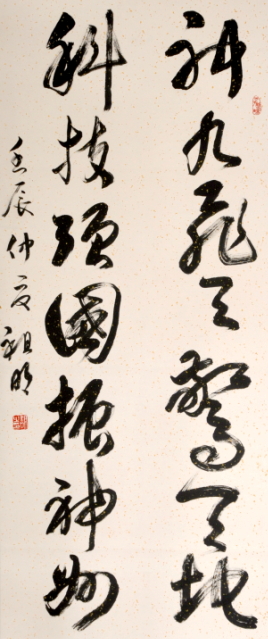 神九飛天驚天地
科技强國振神州
壬辰仲夏祖明